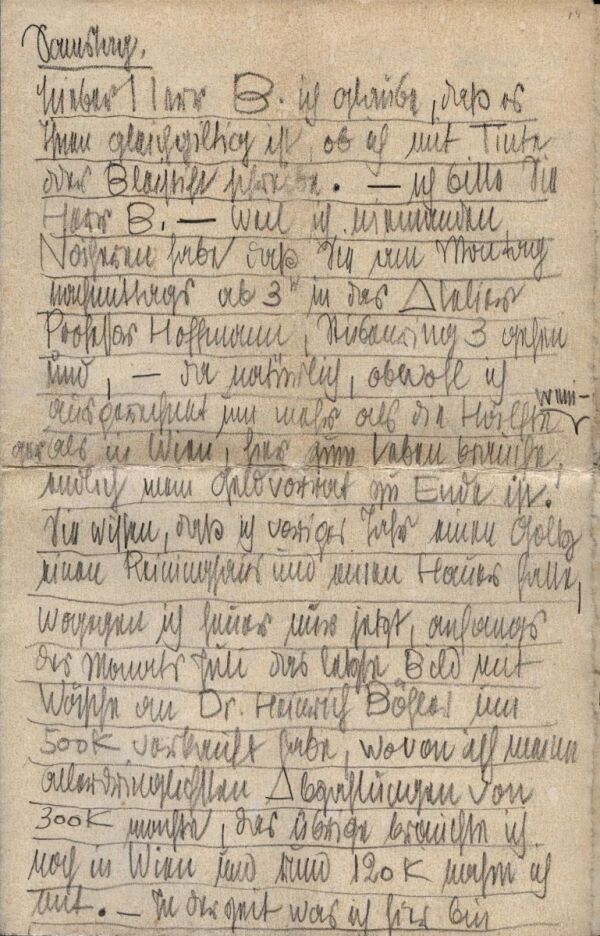 14
Samstag.
Lieber Herr B. ich glaube, daß es
Ihnen gleichgiltig ist, ob ich mit Tinte
oder Bleistift schreibe. — ich bitte Sie
Herr B. — weil ich niemanden
Näheren habe daß Sie am Montag
nachmittags ab 3h in das Atelier
Professor Hoffmann, Stubenring 3 gehen
und, — da natürlich, obwohl ich
ausgerechnet um mehr als die Hälfte weni-
ger als in Wien, hier zum Leben brauche,
endlich mein Geldvorrat zu Ende ist.
Sie wissen, daß ich voriges Jahr einen
einen Reininghaus und einen Hauer hatte,
wogegen ich heuer nur jetzt, anfangs
des Monats Juli das letzte Bild mit
Wäsche an Dr. Heinrich Böhler um
500K verkauft habe, wovon ich meine
allerdringlichsten Abzahlungen von
300K machte, das übrige brauchte ich
noch in Wien und rund 120K nahm ich
mit. — In der Zeit was ich hier bin